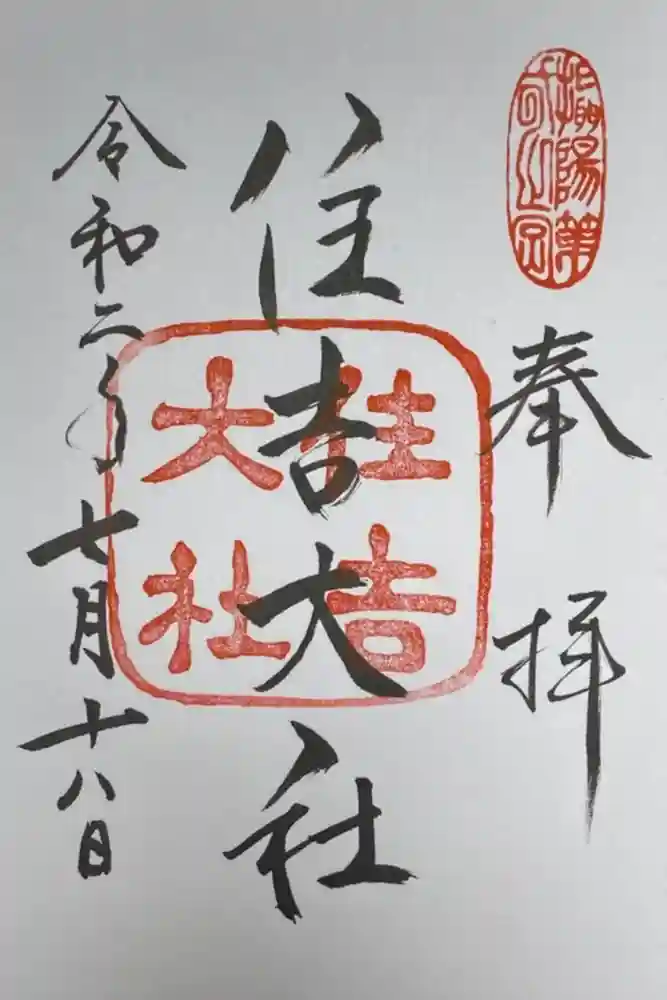 奉拝
住吉大社
住吉
大社
令和二年七月十八日